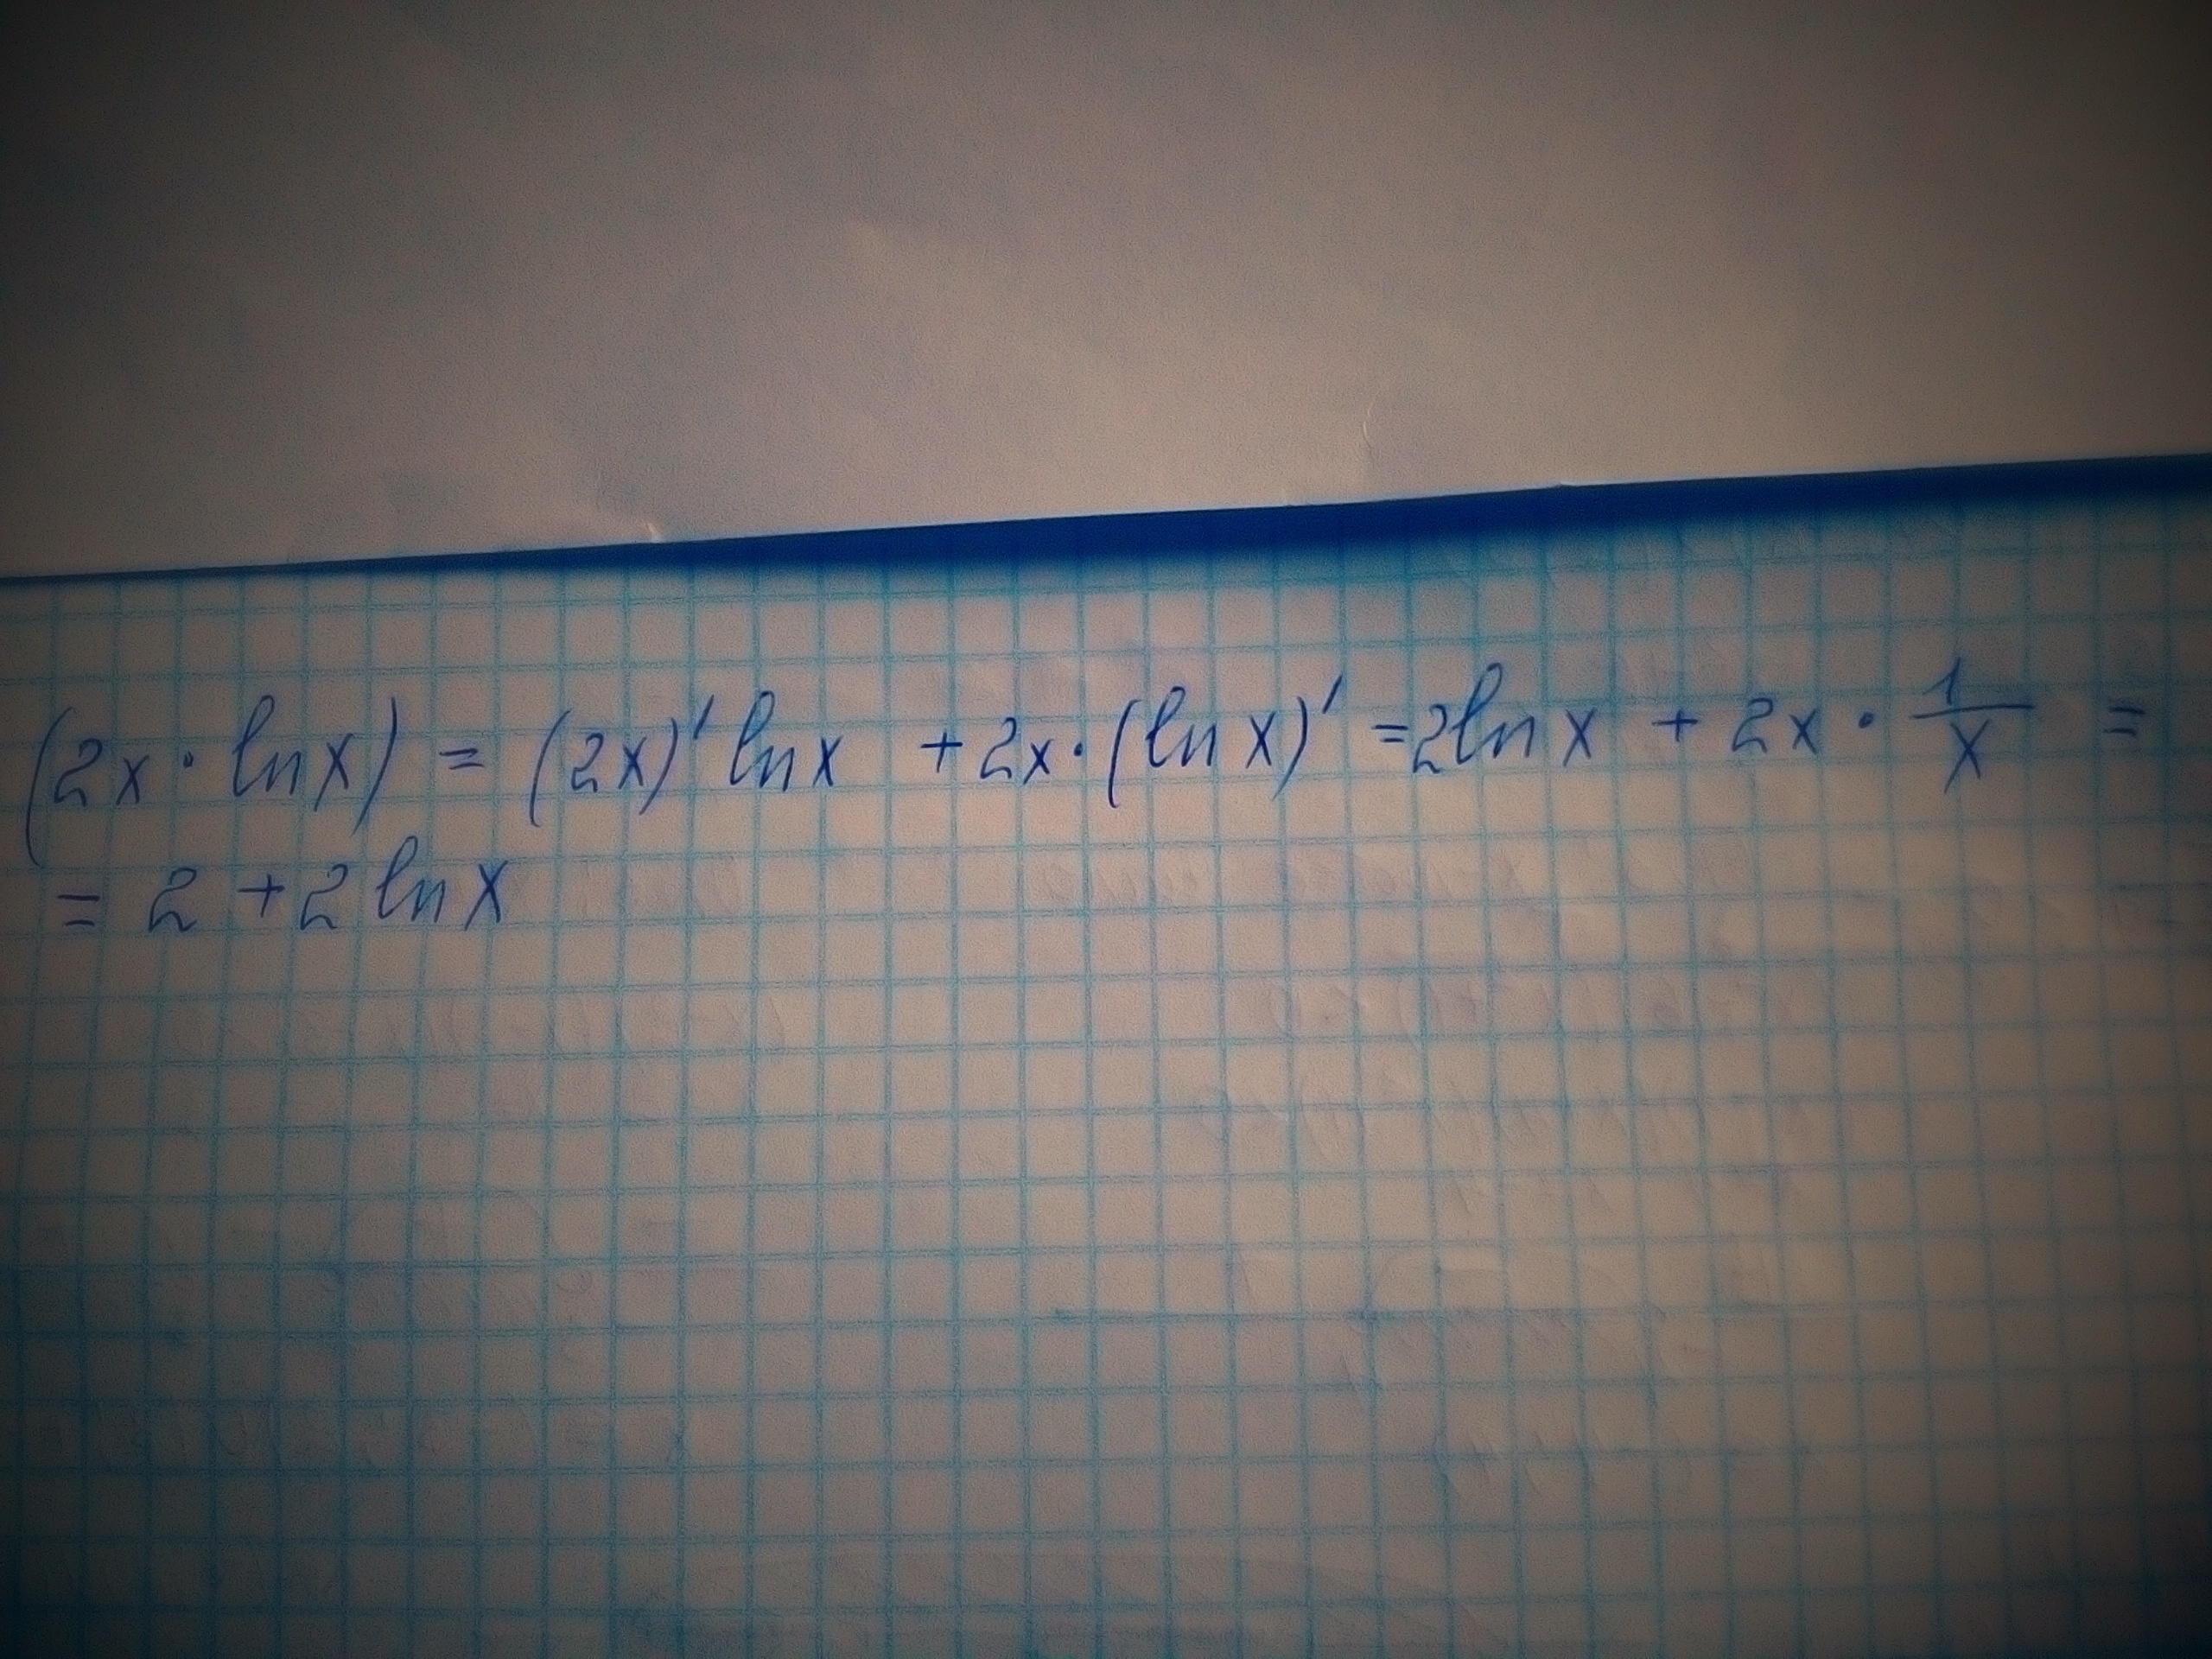 (2x · ln x) = (2x)' ln x + 2x · (ln x)' = 2 ln x + 2x · 1/x =
= 2 + 2 ln x